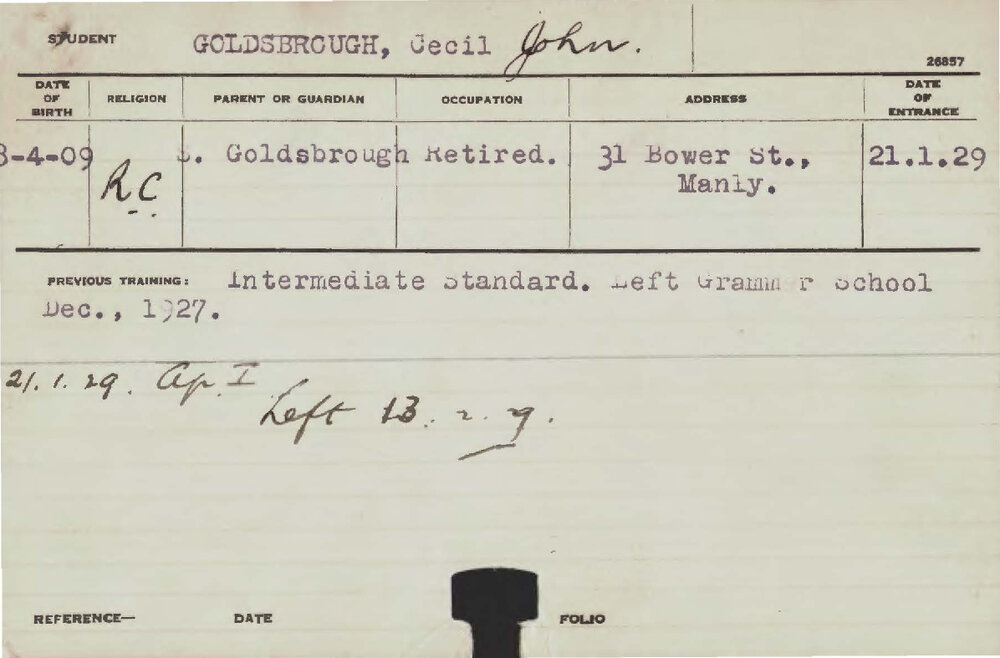 STUDENT GOLDSBROUGH, Cecil John.
26857
DATE OF BIRTH RELIGION PARENT OR GUARDIAN OCCUPATION ADDRESS DATE OF ENTRANCE
8-4-09 R.C. Goldsbrough Retired. 31 Bower St., 21.1.29
Manly.
PREVIOUS TRAINING: Intermediate Standard. Left Grammar School
Dec., 1927.
21.1.29. Ap. I
Left 13.2.29.
REFERENCE— DATE FOLIO